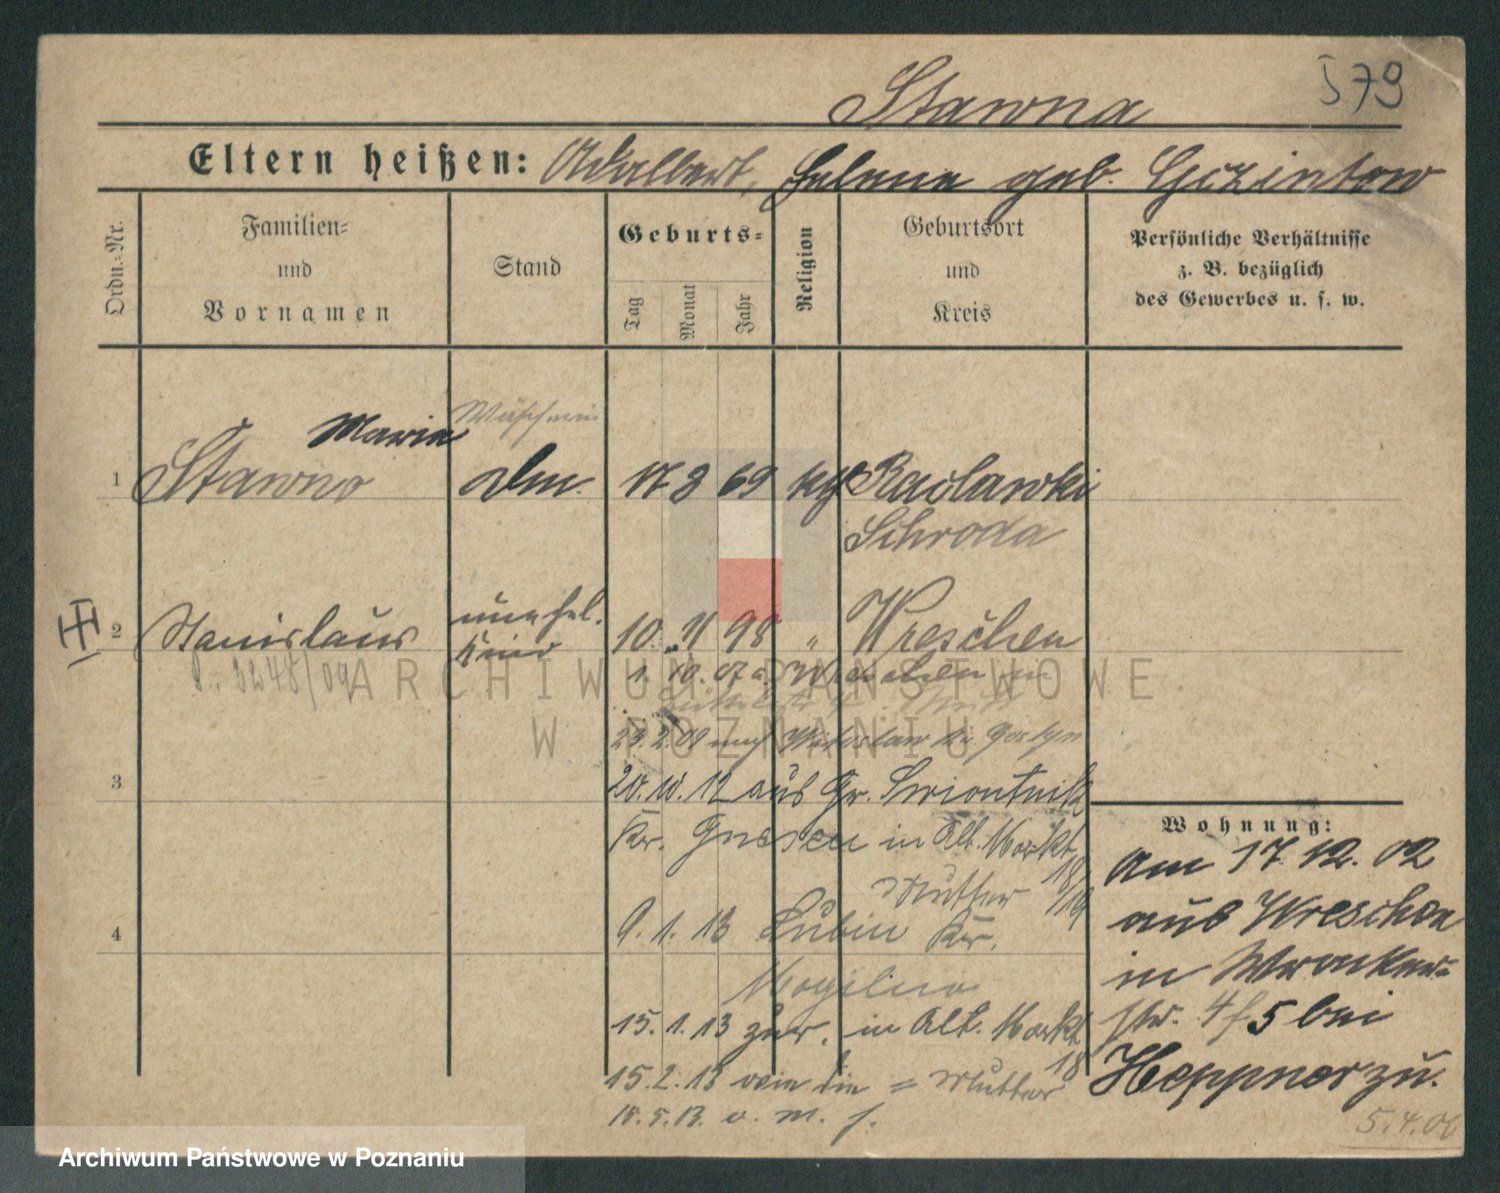 579
Stawna
Eltern heißen: Adalbert, Helene geb.
Ordn.-Nr.
Familien-
und
Vornamen
Stand
Geburts-
Tag
Monat
Jahr
Religion
Geburtsort
und
Kreis
Persönliche Verhältnisse
z. B. bezüglich
des Gewerbes u. s. w.
Maria
1 Stawna 17 8 69 kth Raclawki
Schroda
2 Stanislaus unehel. 10. 11 98 " Wreschen
Kind
1. 10. 07
23. 2. 09
3
20. 10. 12 aus Gr.
Kr. Gnesen in Alt. Markt
18/19
Mutter
4
9. 1. 13 Lubin Kr.
Mogilno
15. 1. 13 zur. in Alt. Markt
18
15. 2. 13 = Mutter
15. 5. 13. v. m. f.
Wohnung:
Am 17. 12. 02
aus Wreschen
in Wronker-
str. 4/5 bei
Heppner zu.
5. 4. 06
ARCHIWUM PAŃSTWOWE
W POZNANIU
Archiwum Państwowe w Poznaniu